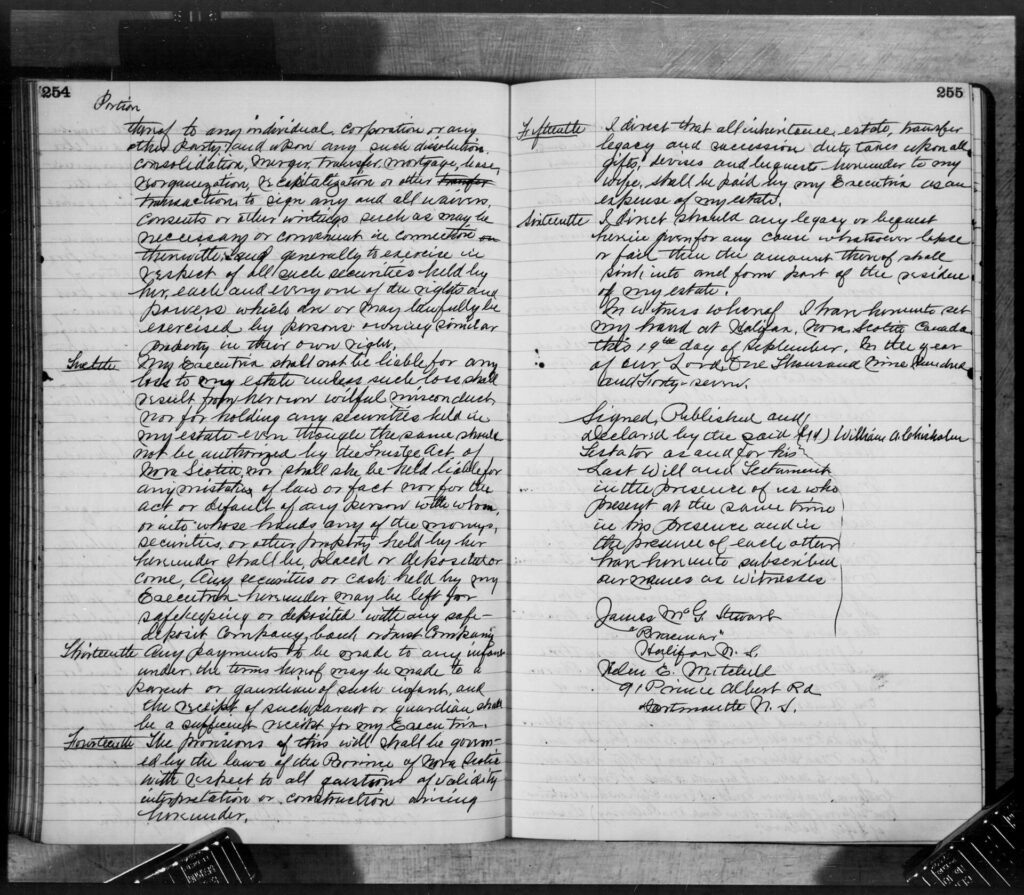 254
Portion
thereof to any individual, corporation or any
other party, and upon any such dissolution,
consolidation, merger, transfer, mortgage, lease,
reorganization, recapitalization or other transfer
transaction, to sign any and all waivers,
consents or other writings such as may be
necessary or convenient in connection on
therewith: and generally to exercise in
respect of all such securities held by
her, each and every one of the rights and
powers which are or may lawfully be
exercised by persons owning similar
property in their own right.
Twelfth My Executrix shall not be liable for any
loss to my estate unless such loss shall
result from her own wilful misconduct
nor for holding any securities held in
my estate even though the same should
not be authorized by the Trustee Act, of
Nova Scotia, nor shall she be held liable for
any mistake of law or fact nor for the
act or default of any person with whom,
or into whose hands any of the moneys,
securities, or other property held by her
hereunder shall be, placed or deposited or
come, Any securities or cash held by my
Executrix hereunder may be left for
safekeeping or deposited with any safe-
deposit company, bank or trust company
Thirteenth Any payments to be made to any infant
under the terms hereof may be made to a
parent or gaurdian of such infant, and
the receipt of such parent or guardian shall
be a sufficient receipt for my Executrix.
Fourteenth The provisions of this will shall be govern-
ed by the laws of the Province of Nova Scotia
with respect to all questions of validity
interpretation or construction arising
hereunder.
255
Fifteenth I direct that all inheritence, estate, transfer
legacy and succession duty taxes upon all
gifts, devises and bequests hereunder to my
wife, shall be paid by my Executrix as an
expense of my estate.
Sixteenth I direct should any legacy or bequest
herein given for any cause whatsoever lapse
or fail then the amount thereof shall
sink into and form part of the residue
of my estate.
In witness whereof I have hereunto set
my hand at Halifax, Nova Scotia Canada
this 19th day of September. In the year
of our Lord, One Thousand Nine Hundred
and Forty-seven.
Signed, Published and
Declared by the said (sgd) William A Chisholm
Testator as and for his
Last Will and Testament
in the presence of us who
present at the same time
in his presence and in
the presence of each other
have hereunto subscribed
our names as witnesses
James McG Stewart
"Braemar"
Halifax N. S.
Helen E. Mitchell
91 Prince Albert Rd
Dartmouth N. S.